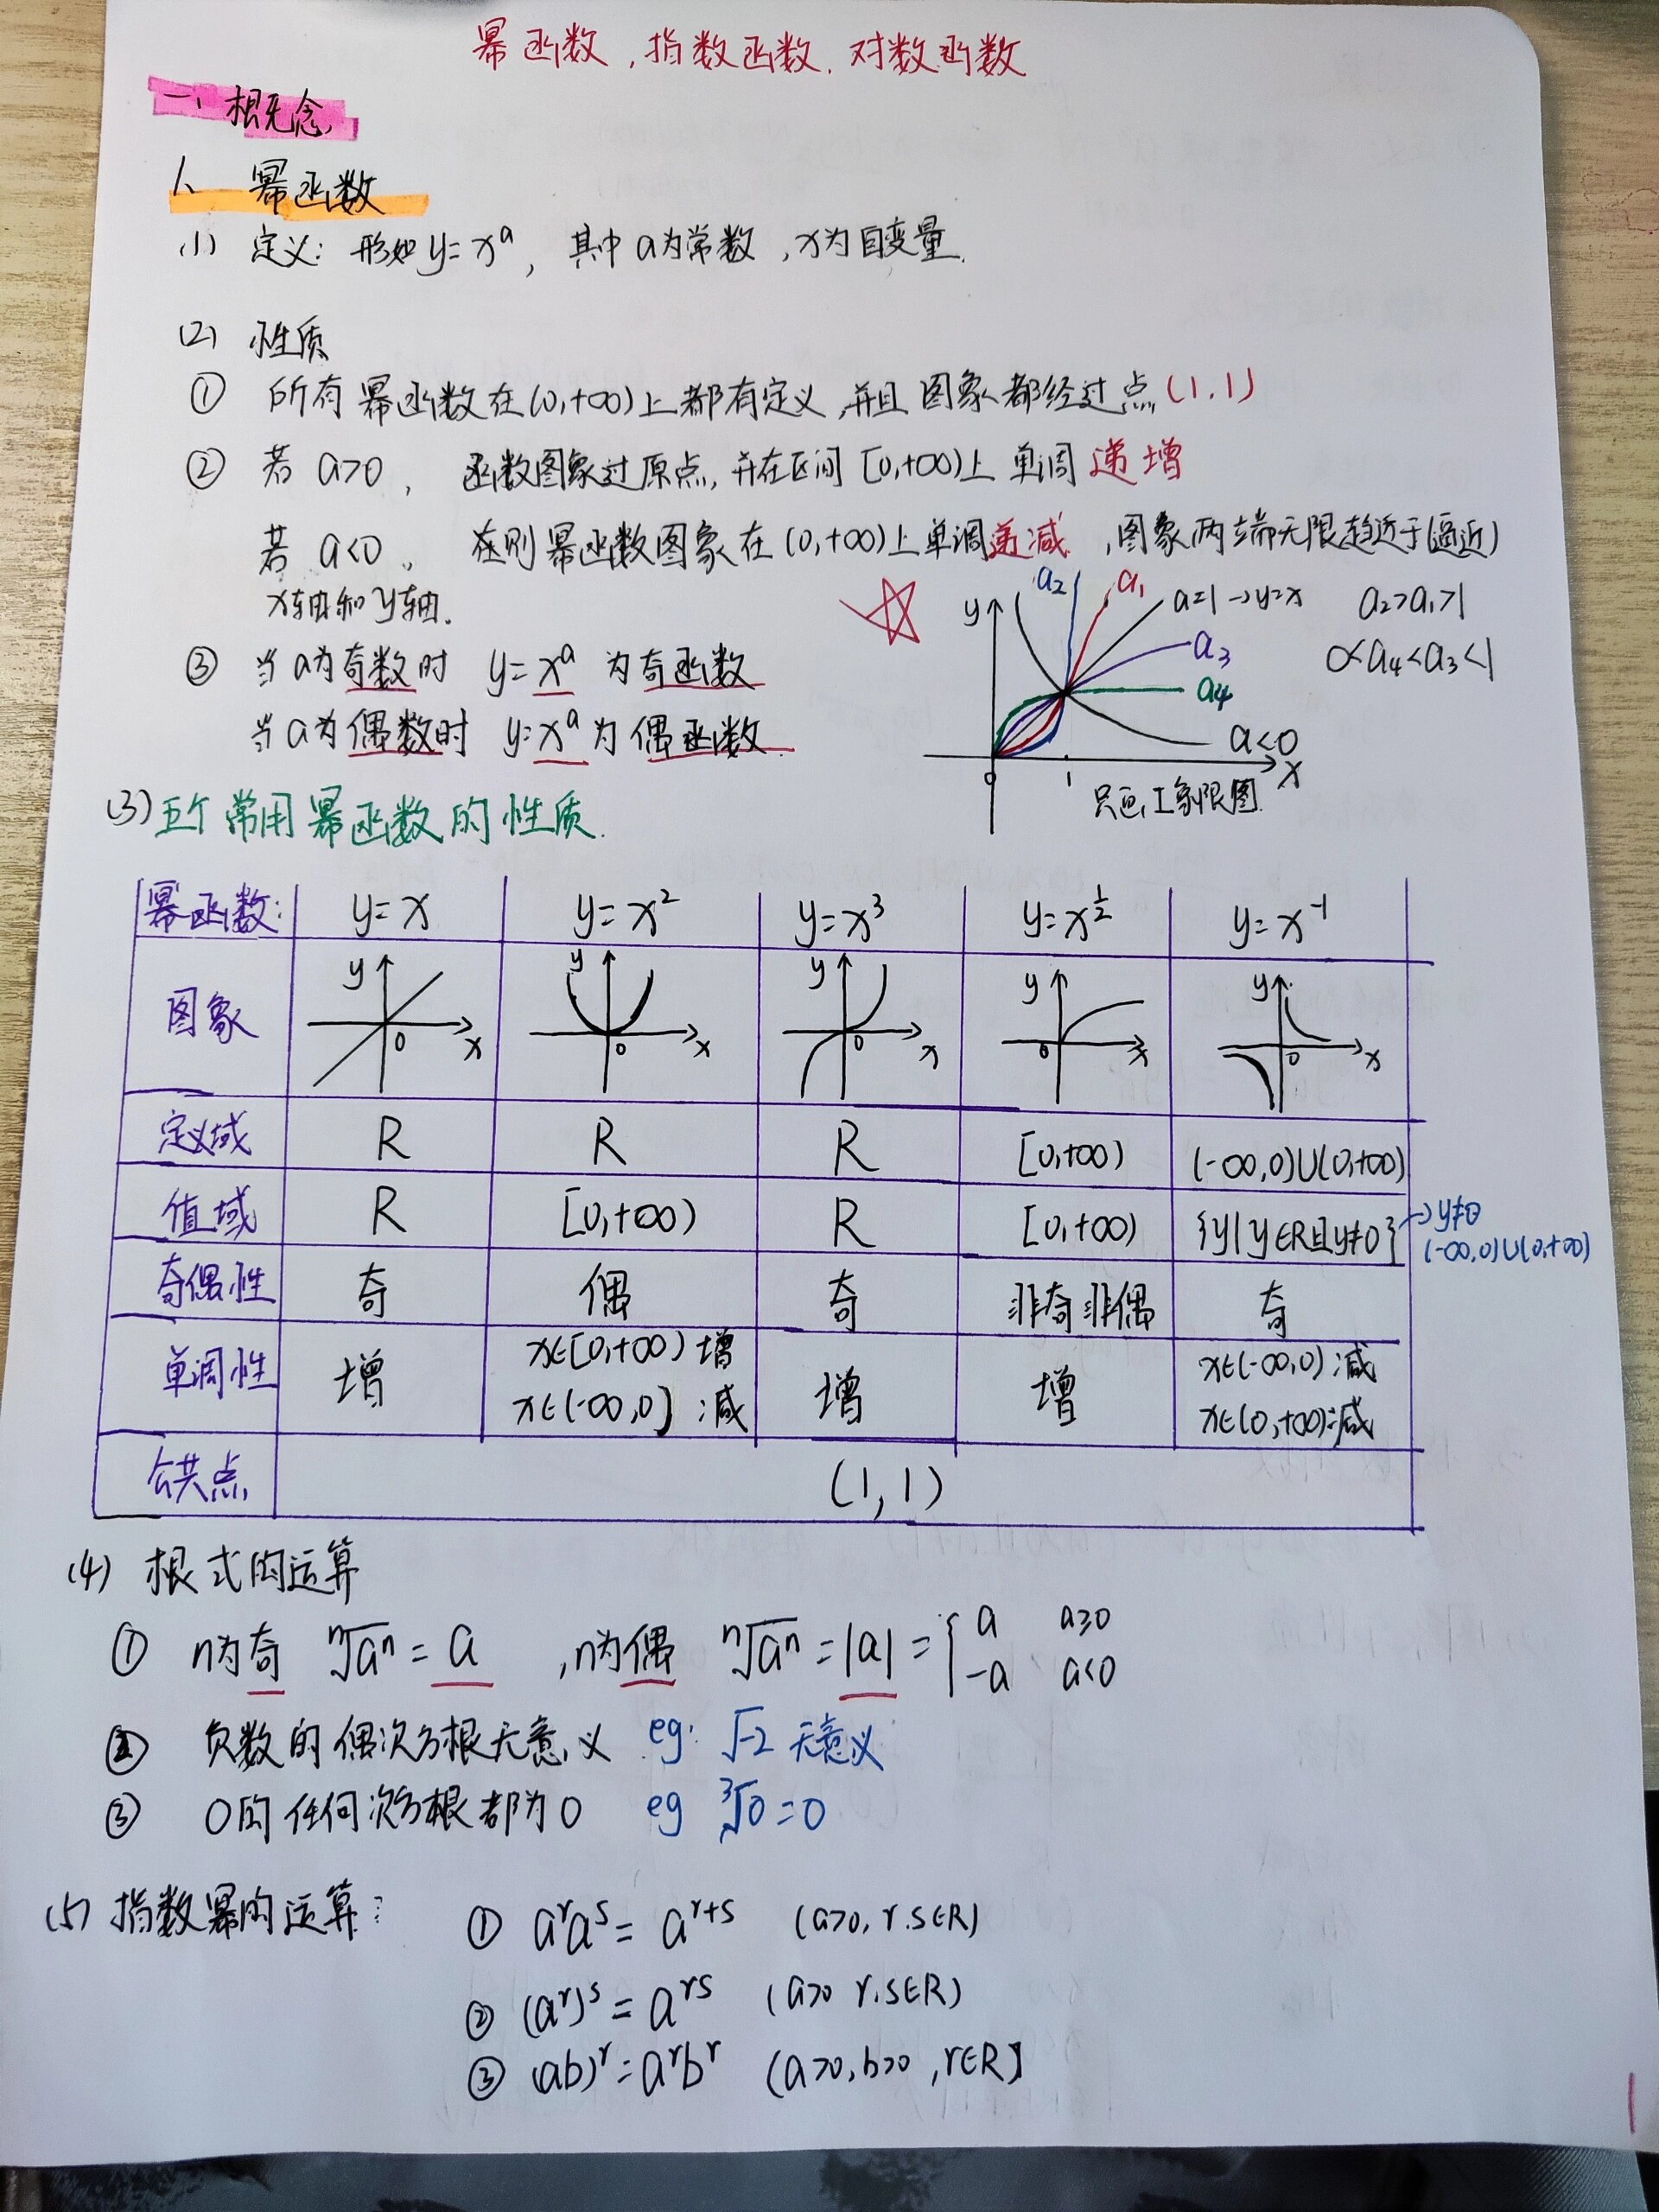 幂函数,指数函数,对数函数
一、概念
1、幂函数
(1) 定义: 形如y=xᵃ, 其中a为常数,x为自变量.
(2) 性质
① 所有幂函数在(0,+∞)上都有定义,并且图象都经过点(1,1)
② 若 a>0, 函数图象过原点,并在区间[0,+∞)上单调递增
若 a<0, 在则幂函数图象在(0,+∞)上单调递减,图象两端无限趋近于(逼近)
x轴和y轴.
③ 当a为奇数时 y=xᵃ 为奇函数
当a为偶数时 y=xᵃ为偶函数
y a₂ a₁ a=1→y=x a₂>a₁>1
a₃ 0<a₄<a₃<1
a₄
a<0
0 1 x
只画I象限图
(3) 五个常用幂函数的性质.
幂函数: y=x y=x² y=x³ y=x^½ y=x⁻¹
图象 y 0 x y 0 x y 0 x y 0 x y 0 x
定义域 R R R [0,+∞) (-∞,0)∪(0,+∞)
值域 R [0,+∞) R [0,+∞) {y|y∈R且y≠0} →y≠0
(-∞,0)∪(0,+∞)
奇偶性 奇 偶 奇 非奇非偶 奇
单调性 增 x∈[0,+∞)增 增 增 x∈(-∞,0):减
x∈(-∞,0]:减 x∈(0,+∞):减
公共点 (1,1)
(4) 根式的运算
① n为奇 ⁿ√aⁿ=a ,n为偶 ⁿ√aⁿ=|a|={a a≥0
-a a<0
② 负数的偶次方根无意义 eg: √-2 无意义
③ 0的任何次方根都为0 eg ³√0=0
(5) 指数幂的运算:
① aʳaˢ=aʳ⁺ˢ (a>0,r.s∈R)
② (aʳ)ˢ=aʳˢ (a>0 r,s∈R)
③ (ab)ʳ=aʳbʳ (a>0,b>0,r∈R]
1